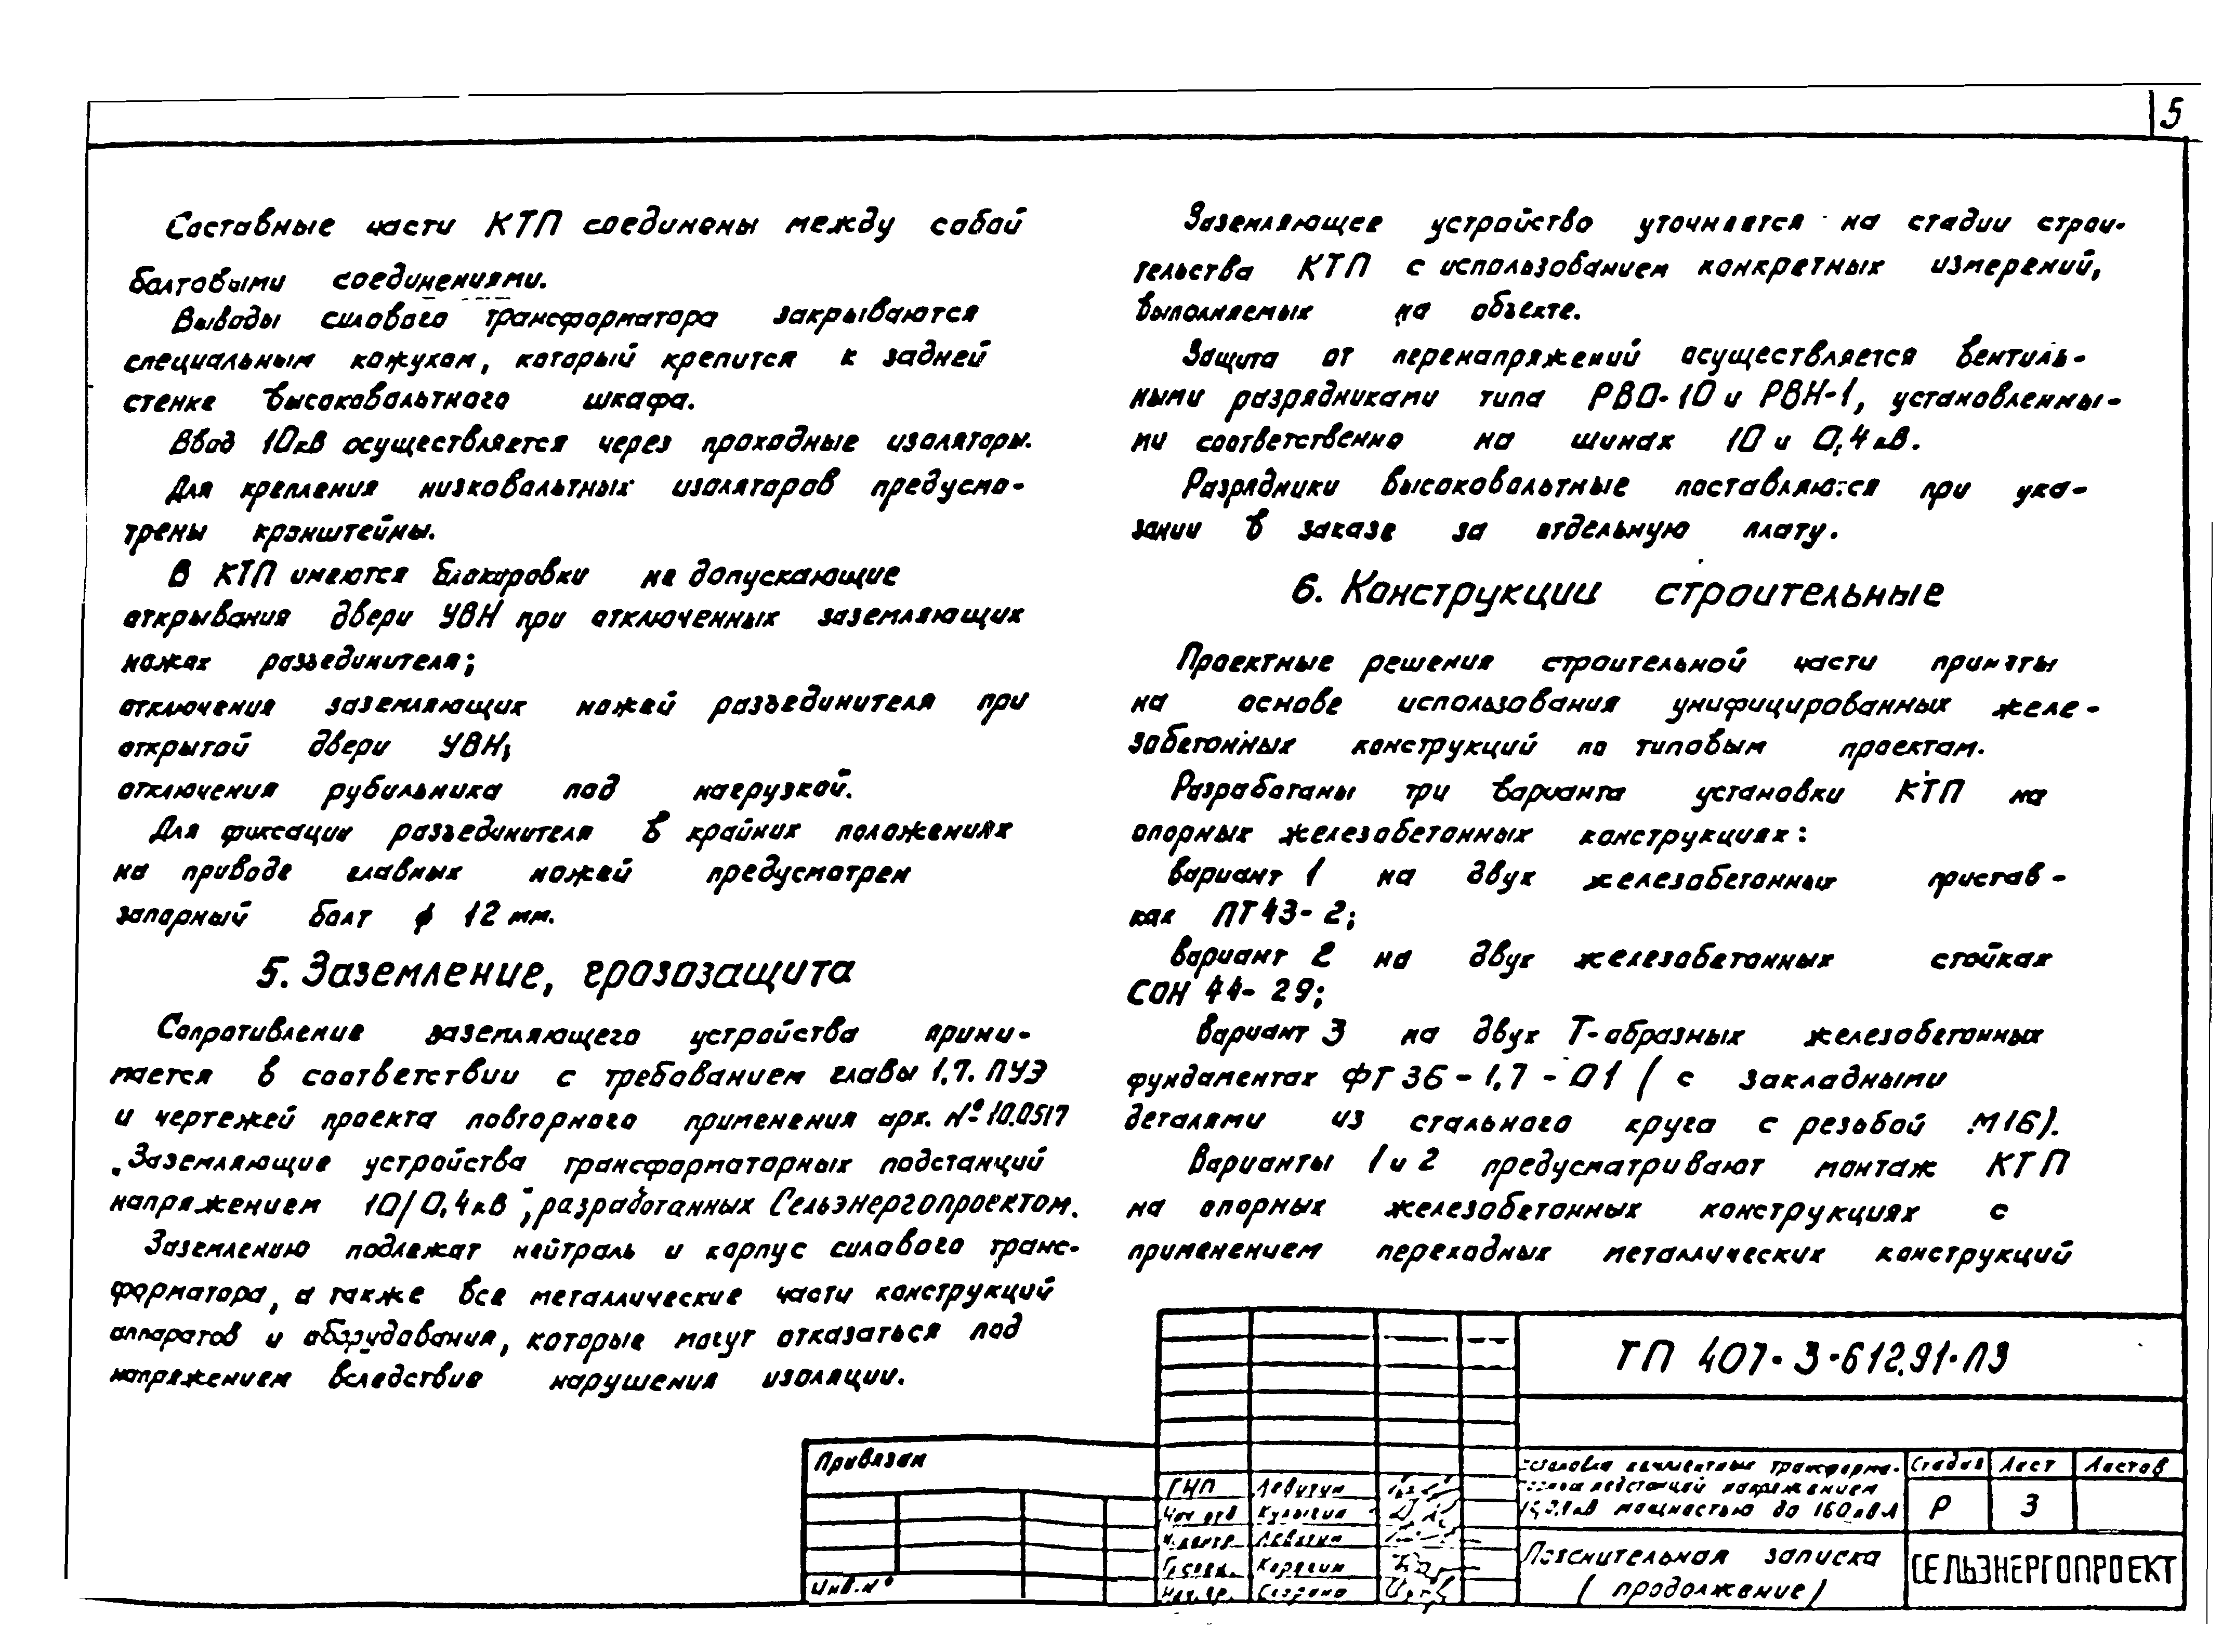 5
Составные части КТП соединены между собой
болтовыми соединениями.
Выводы силового трансформатора закрываются
специальным кожухом, который крепится к задней
стенке высоковольтного шкафа.
Ввод 10кВ осуществляется через проходные изоляторы.
Для крепления низковольтных изоляторов предусмо-
трены кронштейны.
В КТП имеются блокировки не допускающие
открывания двери УВН при отключенных заземляющих
ножах разъединителя;
отключения заземляющих ножей разъединителя при
открытой двери УВН;
отключения рубильника под нагрузкой.
Для фиксации разъединителя в крайних положениях
на приводе главных ножей предусмотрен
запорный болт ϕ 12 мм.
5. Заземление, грозозащита
Сопротивление заземляющего устройства прини-
мается в соответствии с требованием главы 1.7. ПУЭ
и чертежей проекта повторного применения арх. № 10.0517
„Заземляющие устройства трансформаторных подстанций
напряжением 10/0,4 кВ", разработанных Сельэнергопроектом.
Заземлению подлежат нейтраль и корпус силового транс-
форматора, а также все металлические части конструкций
аппаратов и оборудования, которые могут отказаться под
напряжением вследствие нарушения изоляции.
Заземляющее устройство уточняется на стадии строи-
тельства КТП с использованием конкретных измерений,
выполняемых на объекте.
Защита от перенапряжений осуществляется вентиль-
ными разрядниками типа РВО-10 и РВН-1, установленны-
ми соответственно на шинах 10 и 0,4 кВ.
Разрядники высоковольтные поставляются при ука-
зании в заказе за отдельную плату.
6. Конструкции строительные
Проектные решения строительной части приняты
на основе использования унифицированных желе-
зобетонных конструкций по типовым проектам.
Разработаны три варианта установки КТП на
опорных железобетонных конструкциях:
вариант 1 на двух железобетонных пристав-
ках ПТ43-2;
вариант 2 на двух железобетонных стойках
СОН 44-29;
вариант 3 на двух Т-образных железобетонных
фундаментах ФТ36-1,7-01 (с закладными
деталями из стального круга с резьбой М16).
Варианты 1 и 2 предусматривают монтаж КТП
на опорных железобетонных конструкциях с
применением переходных металлических конструкций
ТП 407-3-612.91-ПЗ
Привязан
Инв.№
ГИП Левитин
Нач. отд Кулыгин
Н.контр. Левитин
Гл.спец. Карягин
трансформа-
подстанций напряжением
мощностью до 160 кВА
Стадия Лист Листов
Р 3
Пояснительная записка
(продолжение)
СЕЛЬЭНЕРГОПРОЕКТ